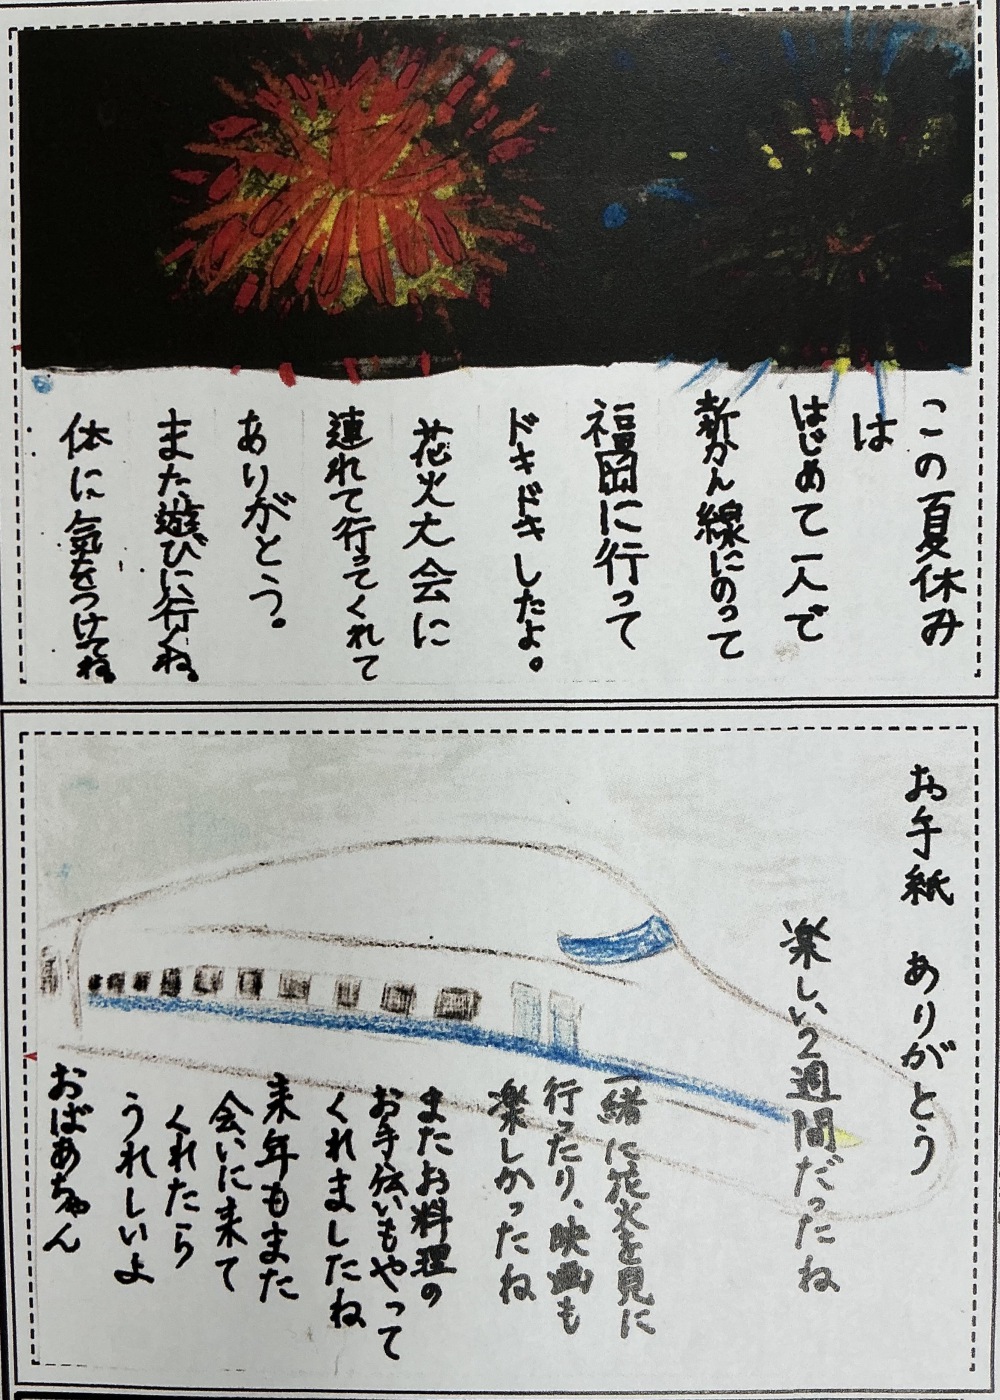 この夏休み
は
はじめて一人で
新かん線にのって
福岡に行って
ドキドキしたよ。
花火大会に
連れて行ってくれて
ありがとう。
また遊びに行くね。
体に気をつけてね。
お手紙 ありがとう
楽しい2週間だったね
一緒に花火を見に
行ったり、映画も
楽しかったね
またお料理の
お手伝いもやって
くれましたね
来年もまた
会いに来て
くれたら
うれしいよ
おばあちゃん